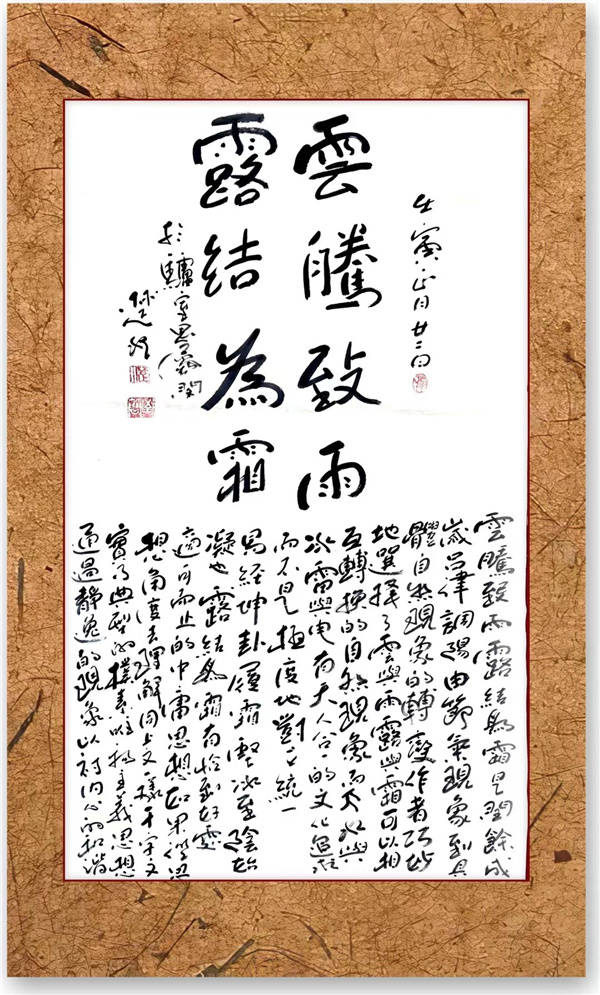 壬寅正月廿二日
雲騰致雨
露結為霜
雲騰致雨露結為霜是閏餘成
歲呂律調陽由節氣現象到具
體自然現象的轉變作者巧妙
地選擇了雲與雨露與霜可以相
互轉換的自然現象而
雷與電有天人合一的文化
而不是極度地對立統一
易經坤卦履霜堅冰至陰始
凝也露結為霜有恰到好處
適可而止的中庸思想如果從思
想角度去理解同上文一樣千字文
典型的樸素唯物主義思想
通過靜逸的現象以討內心的和諧